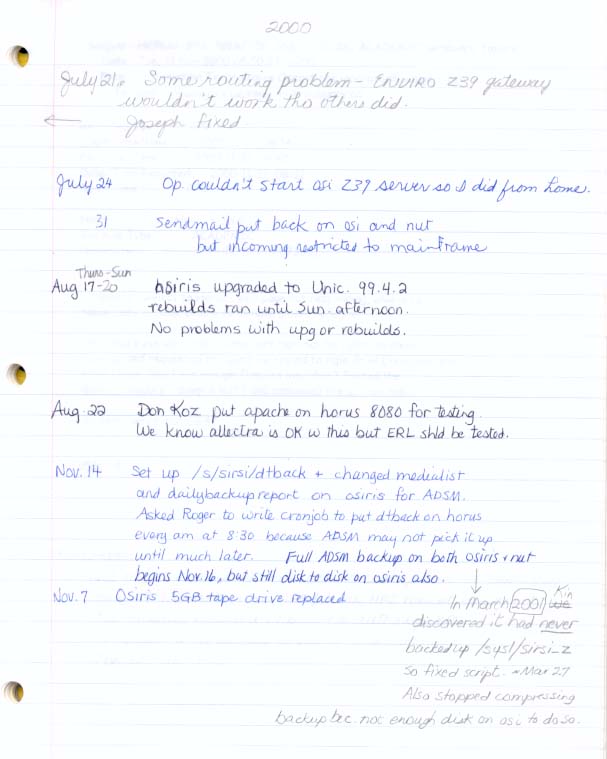 2000
July 21. Some routing problem - ENVIRO Z39 gateway
wouldn't work tho others did.
Joseph fixed
July 24 Op. couldn't start osi Z39 server so I did from home.
31 sendmail put back on osi and nut
but incoming restricted to mainframe
Thurs-Sun
Aug 17-20 osiris upgraded to Unic. 99.4.2
rebuilds ran until Sun. afternoon.
No problems with upg or rebuilds.
Aug. 22 Don Koz put apache on horus 8080 for testing.
We know allectra is OK w this but ERL shld be tested.
Nov. 14 Set up /s/sirsi/dtback + changed medialist
and dailybackupreport on osiris for ADSM.
Asked Roger to write cronjob to put dtback on horus
every am at 8:30 because ADSM may not pick it up
until much later. Full ADSM backup on both osiris + nut
begins Nov. 16, but still disk to disk on osiris also.
Nov. 7 Osiris 5GB tape drive replaced
In March 2001 Kin
discovered it had never
backed up /sys1/sirsi_z
so fixed script. ~Mar 27
Also stopped compressing
backup bec. not enough disk on osi to do so.